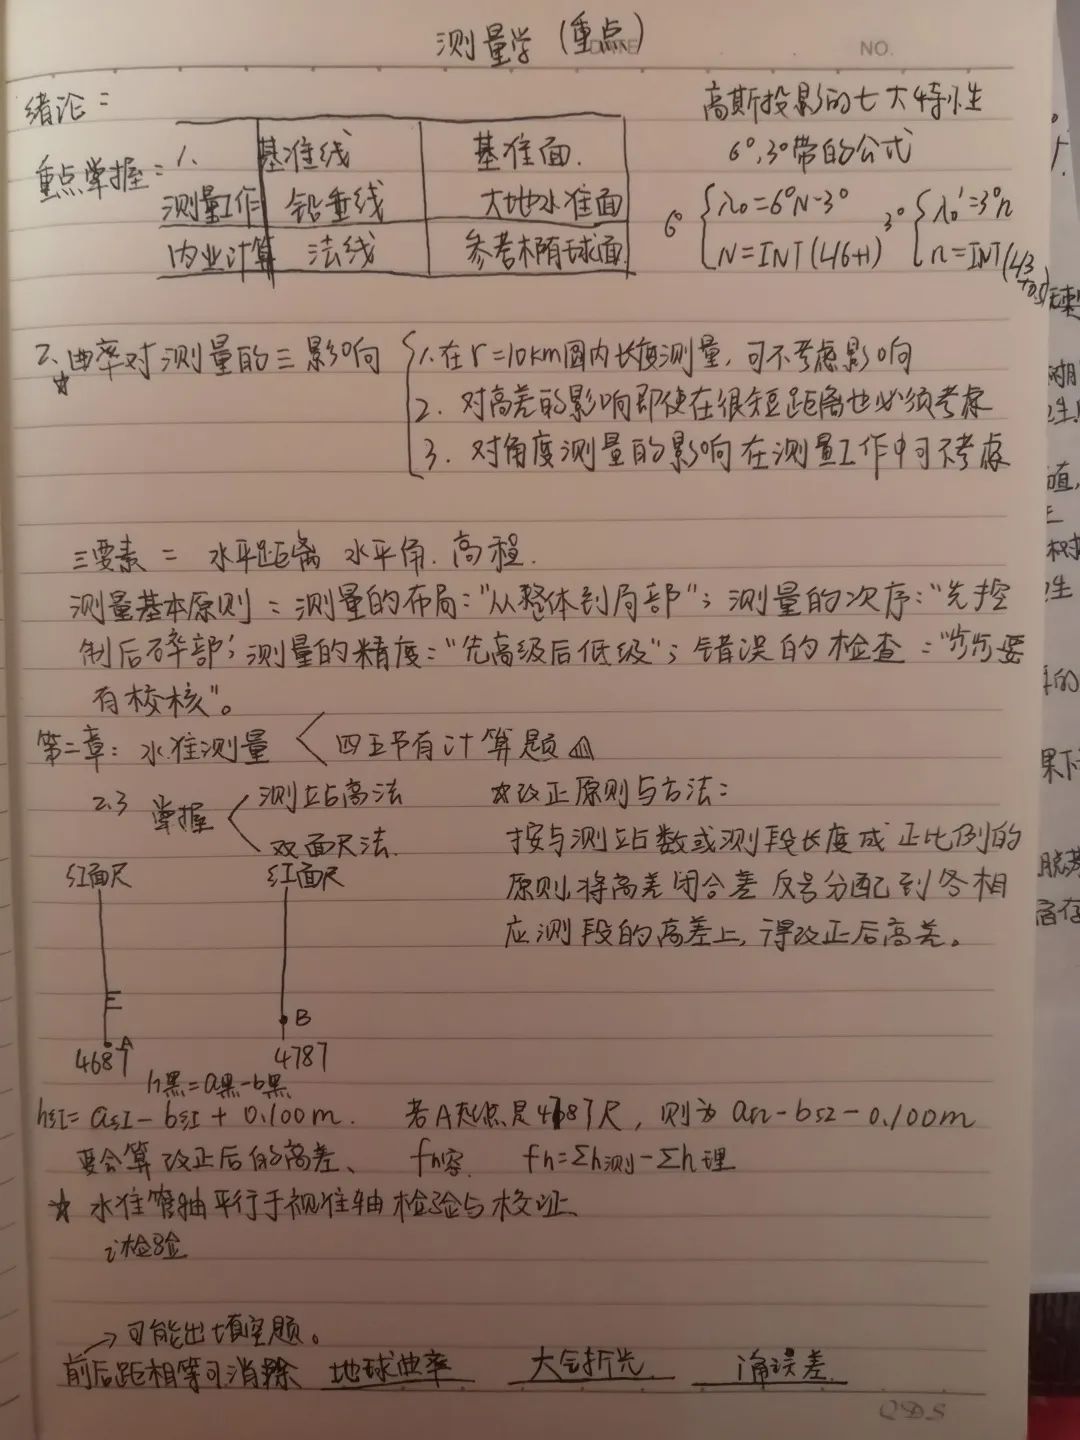 测量学(重点)
DATE
NO.
绪论:
重点掌握:
1. 基准线 基准面.
测量工作 铅垂线 大地水准面
内业计算 法线 参考椭球面
高斯投影的七大特性
6°,3°带的公式
6° { λ₀=6°N-3°
N=INT(L/6+1)
3° { λ₀'=3°n
n=INT(L/3+0.5)
2. 曲率对测量的三影响
☆
1.在r=10km圆内长度测量,可不考虑影响
2. 对高差的影响即使在很短距离也必须考虑
3. 对角度测量的影响在测量工作中可不考虑
三要素 = 水平距离 水平角. 高程.
测量基本原则:测量的布局:“从整体到局部”;测量的次序:“先控
制后碎部;测量的精度:“先高级后低级”;错误的检查:“步步要
有校核”。
第二章:水准测量 < 四五节有计算题
2.3 掌握 < 测站高法
双面尺法.
☆改正原则与方法:
按与测站数或测段长度成正比例的
原则,将高差闭合差反号分配到各相
应测段的高差上,得改正后高差。
红面尺 红面尺
A B
4687 4787
h黑=a黑-b黑
h红=a红-b红+0.100m. 若A起点是4787尺,则为a红-b红-0.100m
要会算改正后的高差、 fh容. fh=Σh测-Σh理
☆ 水准管轴平行于视准轴检验与校正、
i检验
→可能出填空题。
前后距相等可消除 地球曲率 大气折光. i角误差.
QDS